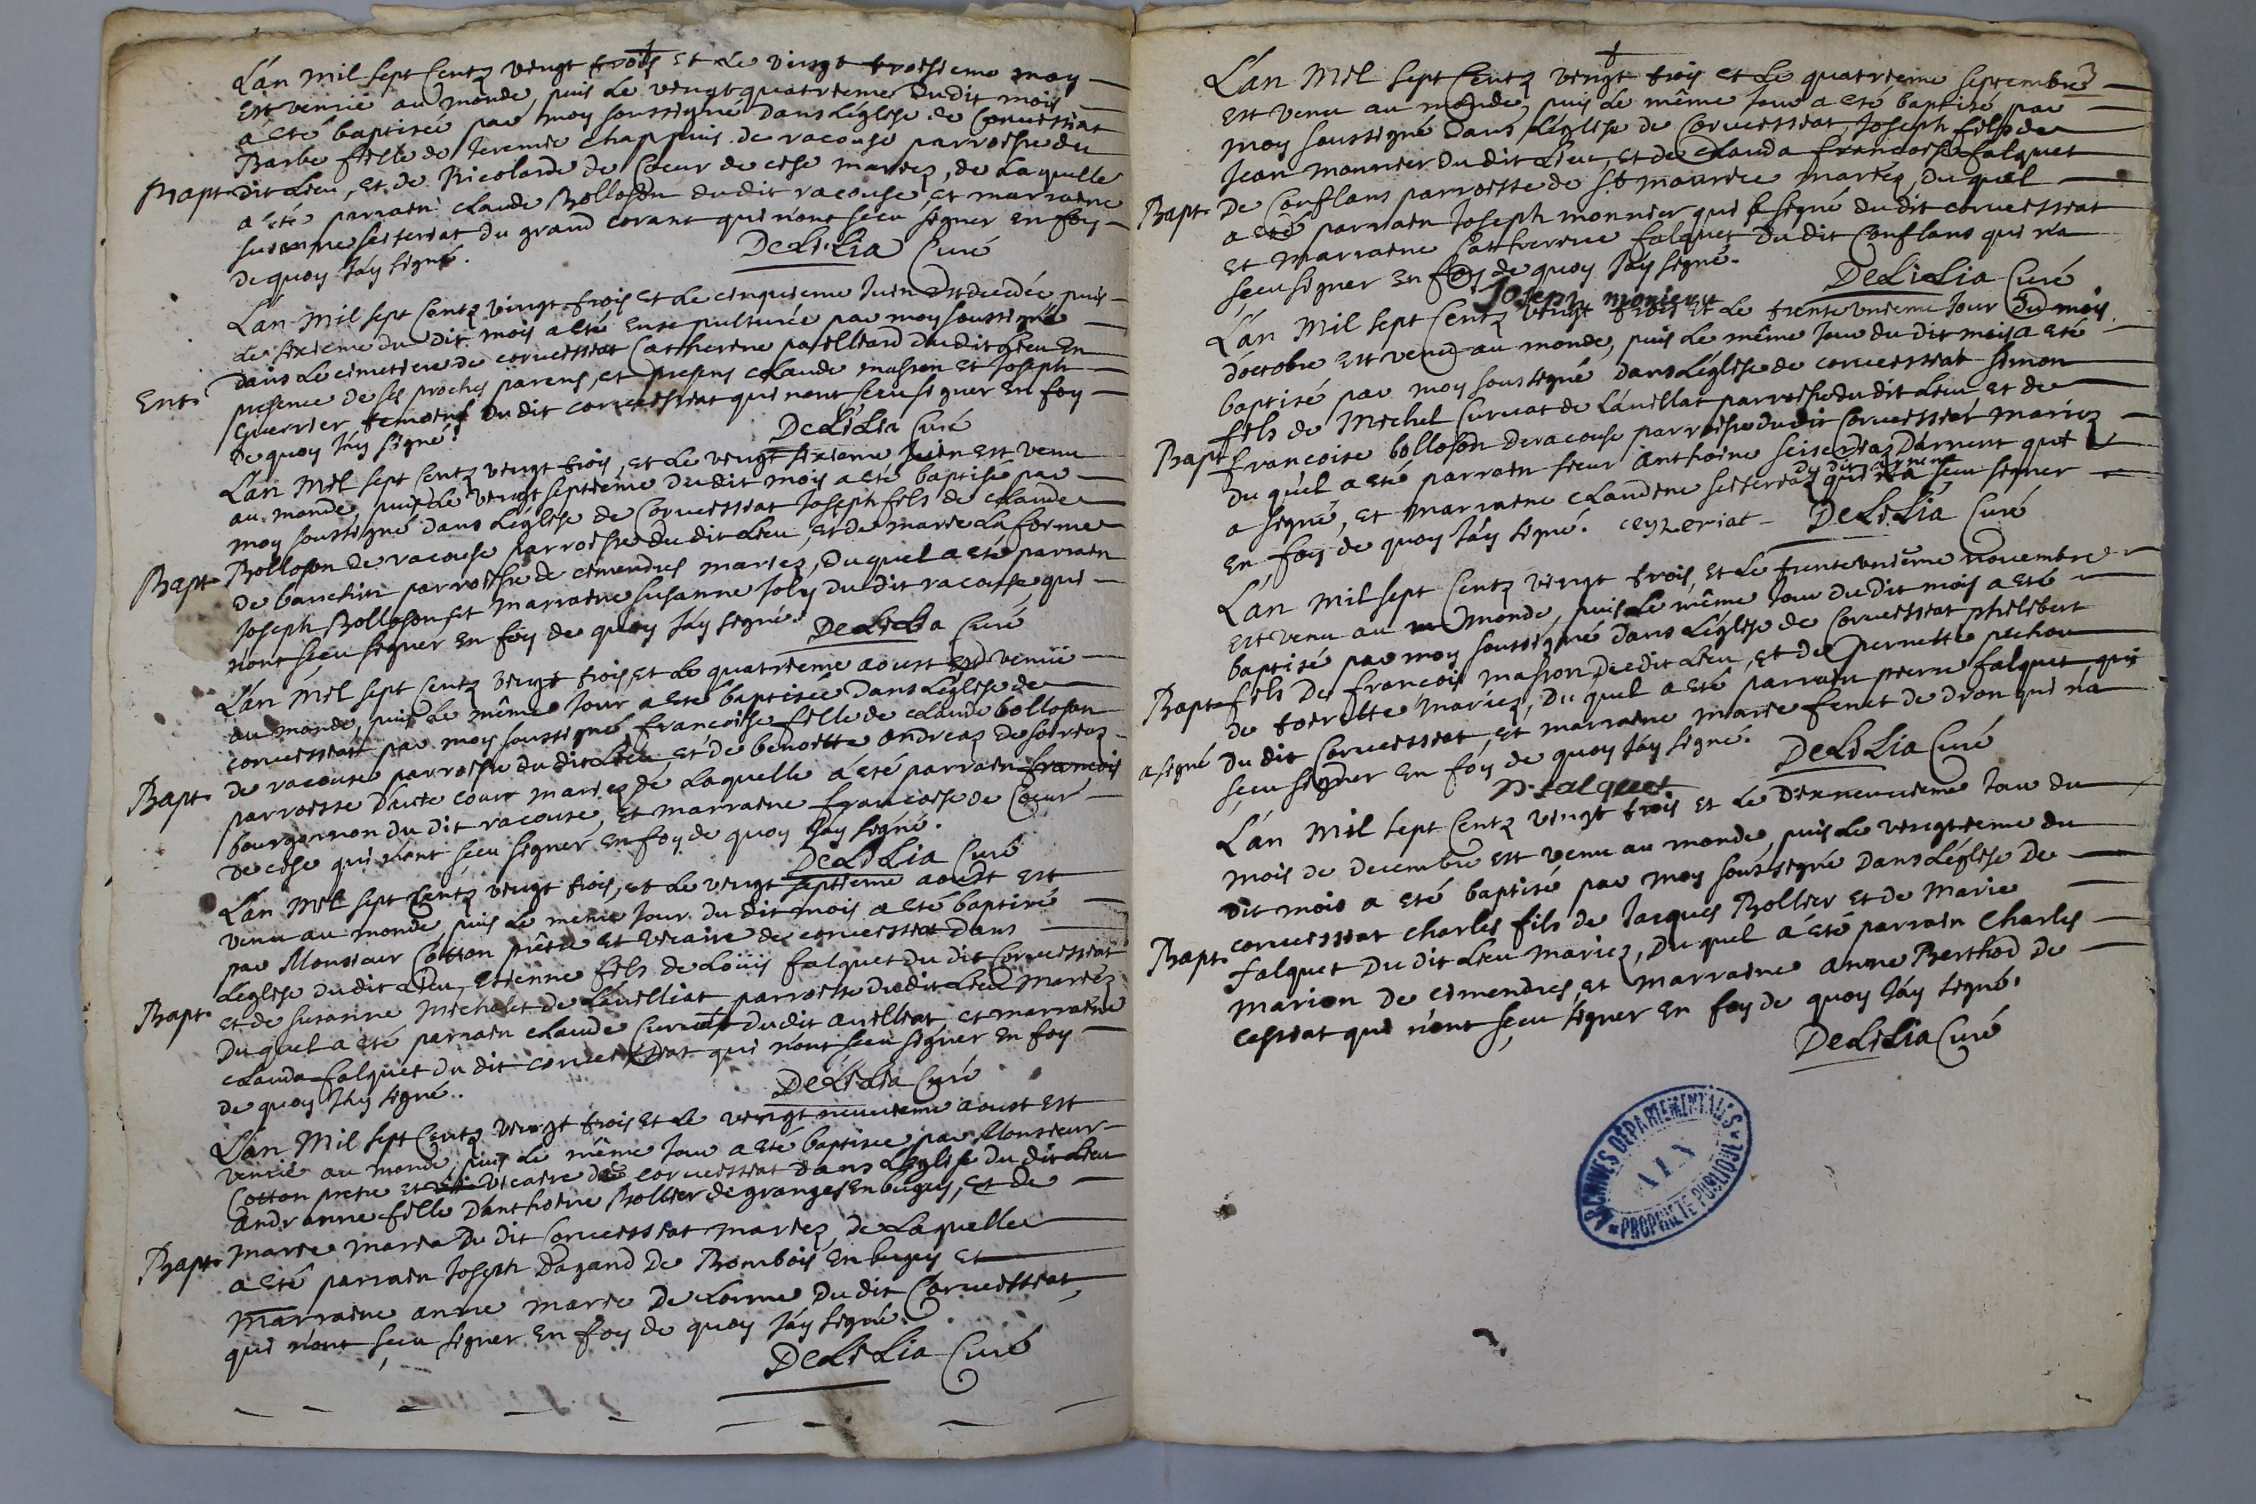 L'an mil sept Centz vingt trois et le vingt troisieme may
est venüe au monde, puis le vingt quatrieme dudit mois
a eté baptisée par moy soussigné dans L'église de Corveissiat
Barbe fille de Jeremie Chappuis de racouse parroisse du
Bapt. dit Lieu, et de Nicolarde de Coeur de cise mariez, de Laquelle
a été parrain Claude Bolloson dudit racouse et marraine
susanne seiseriat du grand corant qui n'ont sceu signer en foy
de quoy J'ay signé.
DeLiLia Curé
L'an mil sept Centz vingt trois et le cinquieme Juin est decedée, puis
le sixieme du dit mois a eté ensepulturée par moy soussigné
dans le cimetiere de corveissiat Catherine pailliard dudit Lieu En
Ent. presence de ses proches parens, et presens claude masson et Joseph
Guerrier temoins du dit corveissiat qui n'ont sceu signer en foy
de quoy J'ay signé.
DeLiLia Curé
L'an mil sept Centz vingt trois, et le vingt sixieme Juin est venu
au monde, puis le vingt septieme dudit mois a eté baptisé par
moy soussigné dans L'église de Corveissiat Joseph fils de claude
Bolloson de racouse parroisse du dit Lieu, et de marie La forme
Bapt. de banchin parroisse de cimendres mariez, duquel a eté parrain
Joseph Bolloson et marraine susanne Joly du dit racouse qui
n'ont sceu signer en foy de quoy J'ay signé.
DeLiLia Curé
L'an mil sept Centz vingt trois, et le quatrieme aoust est venüe
au monde, puis le même Jour a eté baptisée dans L'église de
corveissiat par moy soussigné francoise fille de claude bolloson
de racouse parroisse du dit Lieu, et de benoitte andreaz de soiriaz
Bapt. parroisse d'aute cour mariez de Laquelle a été parrain francois
bourgonnon du dit racouse, et marraine francoise de Coeur
de cise qui n'ont sceu signer en foy de quoy J'ay signé.
DeLiLia Curé
L'an mil sept Centz vingt trois, et le vingt septieme aoust est
venu au monde, puis le même Jour du dit mois a eté baptisé
par Monsieur Cotton prêtre et vicaire de corveissiat dans
L'église du dit Lieu, etienne fils de Loüis falquet du dit Corveissiat
Bapt. et de susanne michalet de L'évelliat parroisse dudit Lieu mariez
Duquel a eté parrain claude Curvat dudit avelliat et marraine
clauda falquet du dit corveissiat qui n'ont sceu signer en foy
de quoy J'ay signé.
DeLiLia Curé
L'an Mil sept Centz vingt trois et le vingt neuvieme aoust est
venüe au monde, puis le même Jour a eté baptisée par Monsieur
Cotton pretre et vicaire de corveissiat dans L'église du dit Lieu
andreanne fille d'anthoine Bollier de granges en bugey, et de
Bapt. marie maria du dit Corveissiat mariez, de Laquelle
a eté parrain Joseph Dagand de Bombois En bugey et
marraine anne marie De Lorme du dit Corveissiat
qui n'ont sceu signer en foy de quoy J'ay signé.
DeLiLia Curé
L'an Mil sept Centz vingt trois et le quatrieme septembre
est venu au monde, puis le même Jour a eté baptisé par
moy soussigné dans L'église de Corveissiat Joseph fils de
Jean monnier du dit Lieu, et de clauda francoise falquet
Bapt. de Conflans parroisse de st maurice mariez, du quel
a eté parrain Joseph monnier qui a signé du dit corveissiat
et marraine Catherine falquet du dit Conflans qui n'a
sceu signer en foy de quoy J'ay signé.
DeLiLia Curé
Joseph monieru
L'an Mil sept Centz vingt trois et le trente unieme Jour du mois
d'octobre est venu au monde, puis le même Jour du dit mois a eté
baptisé par moy soussigné dans L'église de corveissiat simon
fils de Michel Curvat de L'avillat parroisse du dit Lieu et de
Bapt. francoise bolloson de racouse parroisse du dit Corveissiat mariez
du quel a eté parrain sieur anthoine seiseriaz d'arnent qui
du dit arnent
a signé, et marraine claudine seiseriaz qui n'a sceu signer
en foy de quoy J'ay signé. ceyzeriat DeLiLia Curé
L'an mil sept Centz vingt trois, et le trente unieme novembre
est venu au monde, puis le même Jour du dit mois a eté
baptisé par moy soussigné dans L'église de Corveissiat philibert
Bapt. fils de francois masson du dit Lieu, et de pernette pechou
de toirette mariez, du quel a eté parrain pierre falquet qui
a signé du dit Corveissiat, et marraine marie fenet de dron qui n'a
sceu signer en foy de quoy J'ay signé.
DeLiLia Curé
p. falquet
L'an Mil sept Centz vingt trois et le Dixneuvieme Jour du
mois de decembre est venu au monde, puis le vingtieme du
dit mois a eté baptisé par moy soussigné dans L'église de
corveissiat charles fils de Jacques Bollier et de Marie
Bapt. falquet du dit Lieu mariez, du quel a été parrain Charles
marion de cimendres, et marraine anne Berthod de
cessiat qui n'ont sceu signer en foy de quoy J'ay signé.
DeLiLia Curé
ARCHIVES DÉPARTEMENTALES
AIN
PROPRIÉTÉ PUBLIQUE